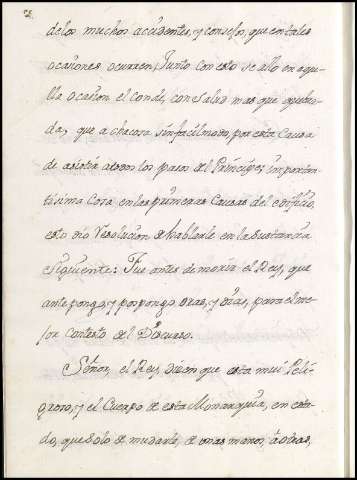 delos muchos accidentes, y consejos, que en tales
ocasiones ocurren; Junto con esto se allo en aque
lla ocasion el Conde, con Salud mas que quebra
da, que achacosa sinfacilmovo por esta Causa
de asistir atodos los pasos del Principe; importan
tisima Cosa, en las primeras Causas del edificio,
esto dio Resolucion de hablarle en la Sustancia
siguiente: Fue antes de morir el Rey, que
antepongo, y pospongo oras, y dias, para el me
jor contexto del Discurso.
Señor, el Rey, dicen que esta mui Peli
groso, y el Cuerpo de esta Monarquia, en esta
do, que solo de mudarle, de unas manos, à otras,